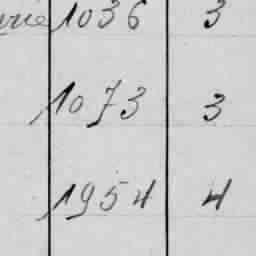 1036 3
1073 3
1954 4